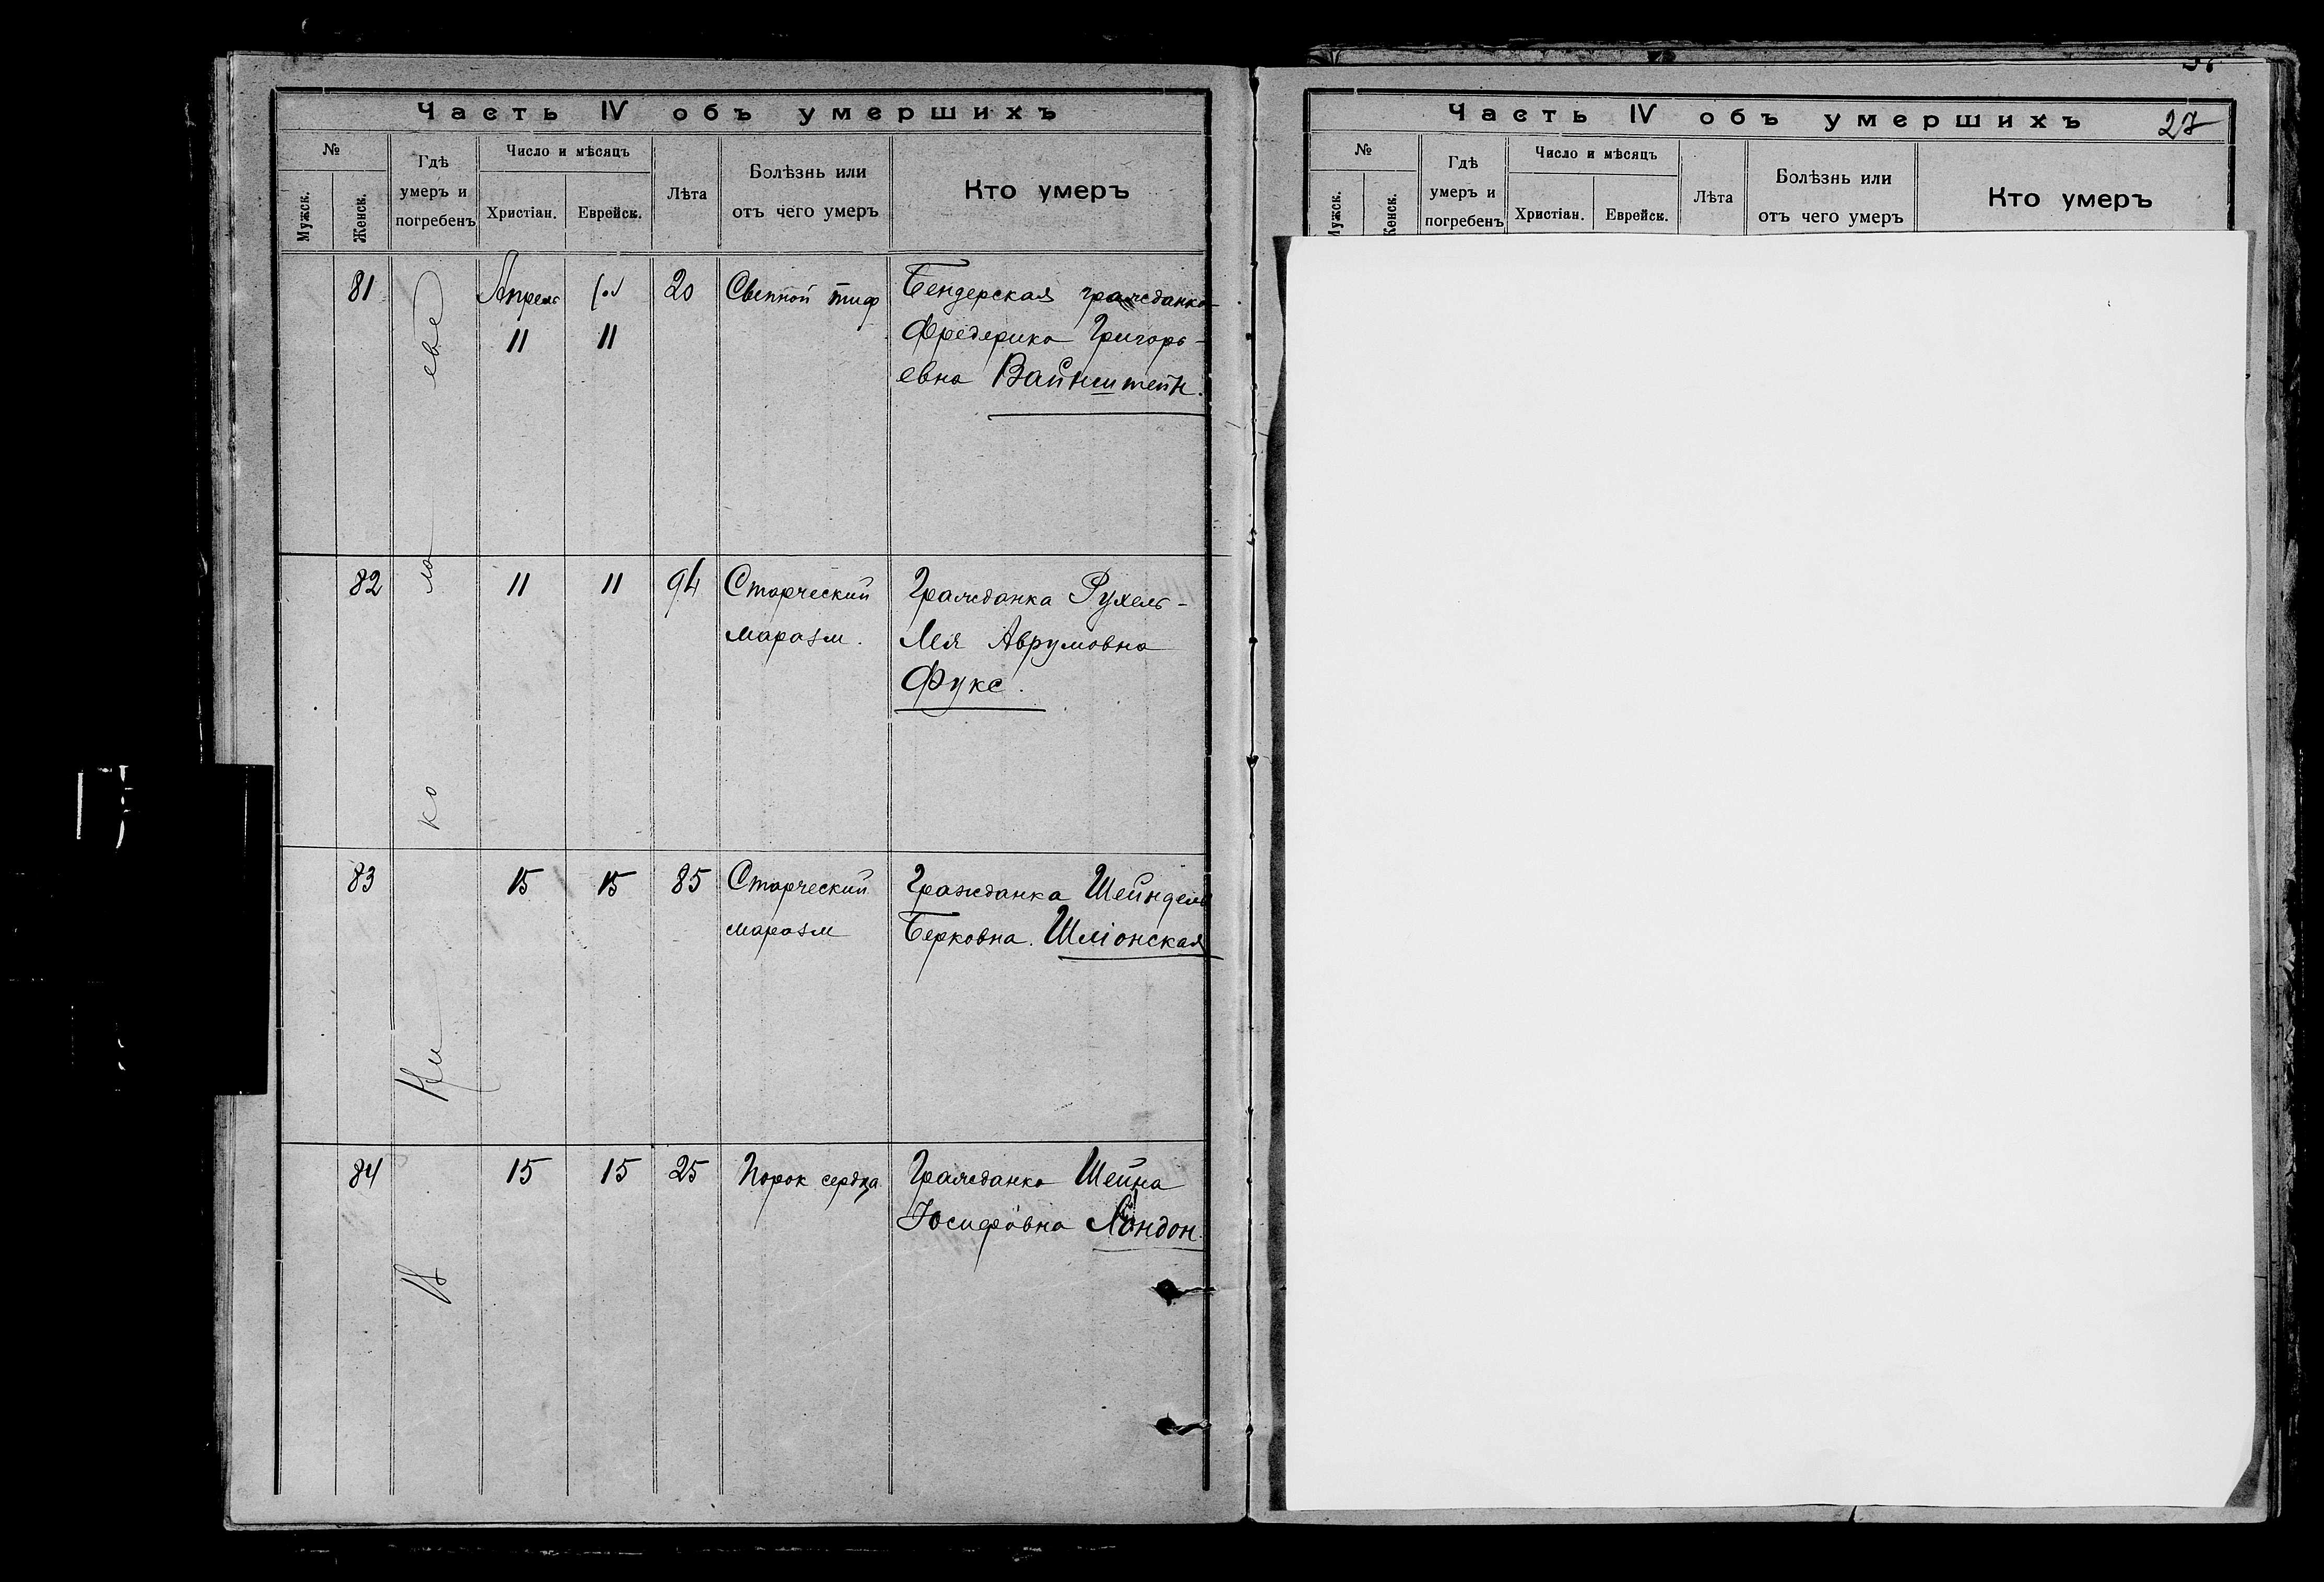 Часть IV объ умершихъ
№
Мужск.
Женск.
Гдѣ
умеръ и
погребенъ
Число и мѣсяцъ
Христіан.
Еврейск.
Лѣта
Болѣзнь или
отъ чего умеръ
Кто умеръ
81
Апрель
11
11
20
Сыпной тиф
Бендерская гражданка
Фредерика Григорь-
евна Вайнштейн.
82
11
11
94
Старческий
маразм.
Гражданка Рухель-
Лея Аврумовна
Фукс.
83
15
15
85
Старческий
маразм
Гражданка Шейндель
Берковна. Шліонская
84
15
15
25
Порок сердца
Гражданка Шейна
Іосифовна Лондон.
В Ни ко ла еве
Часть IV объ умершихъ
27
№
Мужск.
Женск.
Гдѣ
умеръ и
погребенъ
Число и мѣсяцъ
Христіан.
Еврейск.
Лѣта
Болѣзнь или
отъ чего умеръ
Кто умеръ